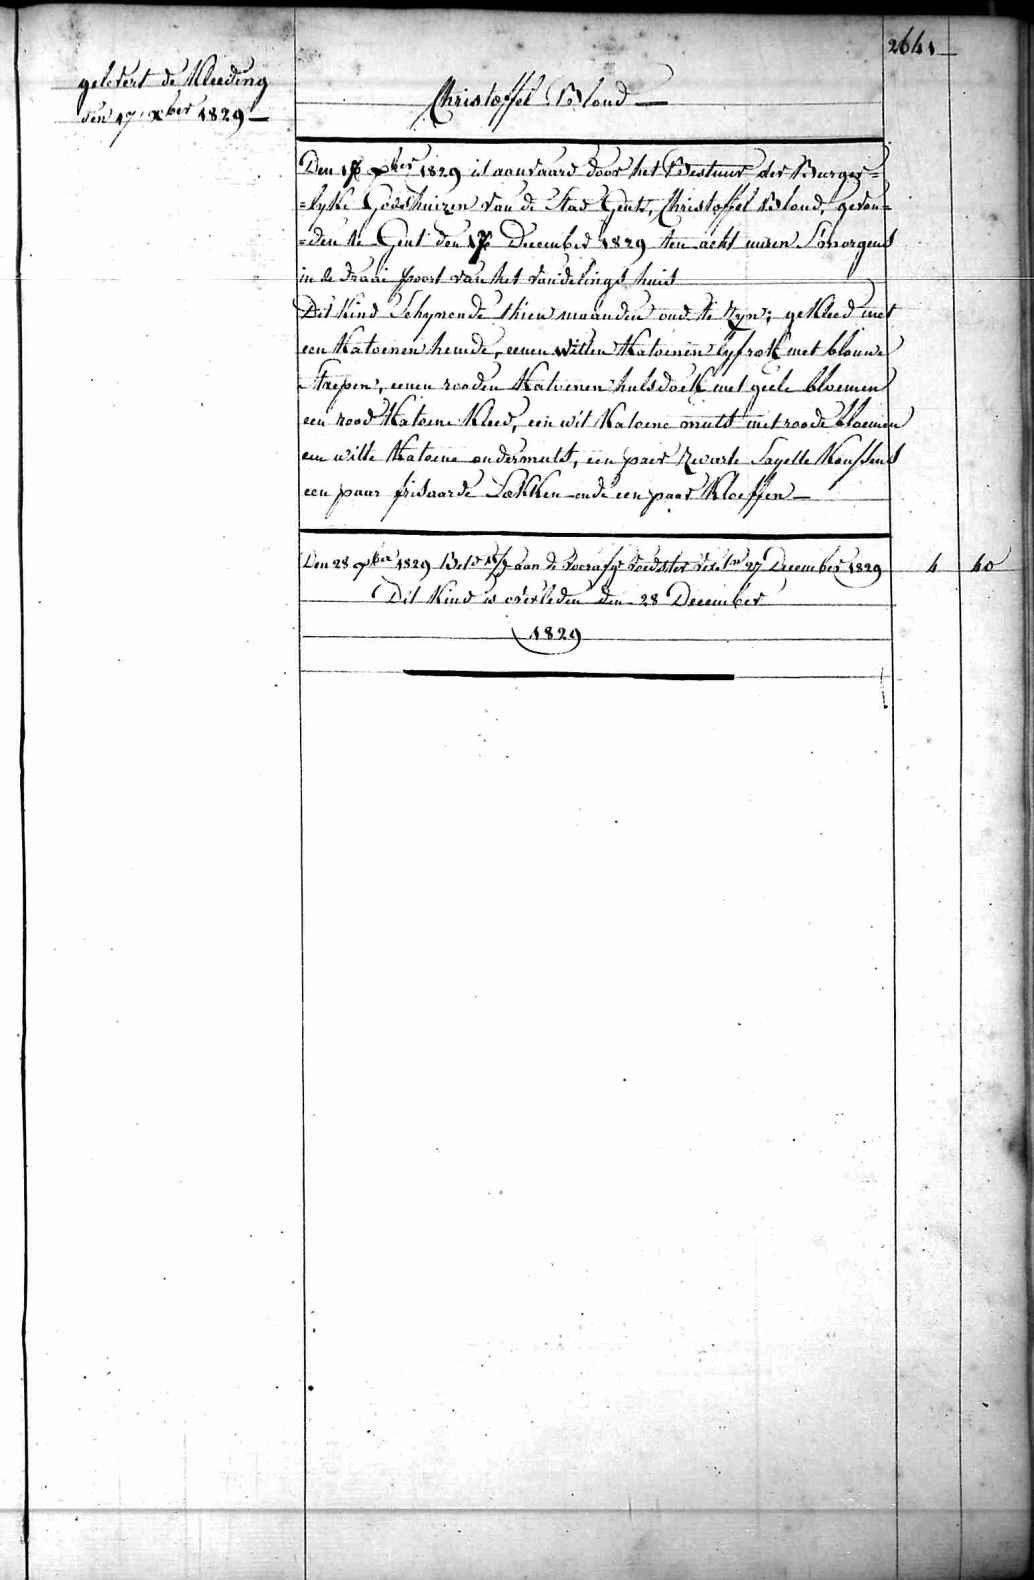 2641
gelevert de Kleeding
den 17 xber 1829 —
Christoffel Blond —
Den 17 xber 1829 is aanvaard door het Bestuur der Burger=
=lyke Godshuizen van de Stad Gent, Christoffel Blond, gevon=
=den te Gent den 17 December 1829 ten acht uuren s'morgens
in de draai poort van het vondelings huis
Dit Kind Schynende thien maanden oud te zyn; gekleed met
een Katoenen hemde, eenen witten Katoenen lyfrok met blauwe
Straepen, eenen rooden Katoenen halsdoek met geele bloemen
een rood Katoene Kleed, een wit Katoene muts met roode bloemen
een witte Katoene ondermuts, een paer zwarte Sayette Koussens
een paar frisaarde Sokken ende een paar Kloeffen —
Den 28 xber 1829 Bet. aan de voedster tot 27 December 1829 4 40
Dit Kind is overleden den 28 December
1829